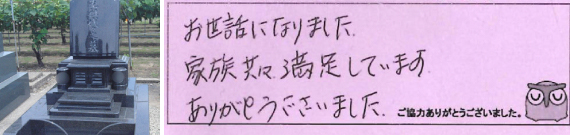 お世話になりました.
家族共々満足しています
ありがとうございました.
ご協力ありがとうございました。